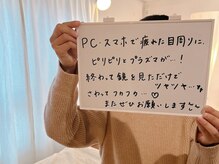 PC・スマホで疲れた目周りに、
ピリピリとプラズマが…！
終わって鏡を見ただけで
ツヤツヤ…✨
さわってフカフカ…♡
またぜひお願いします